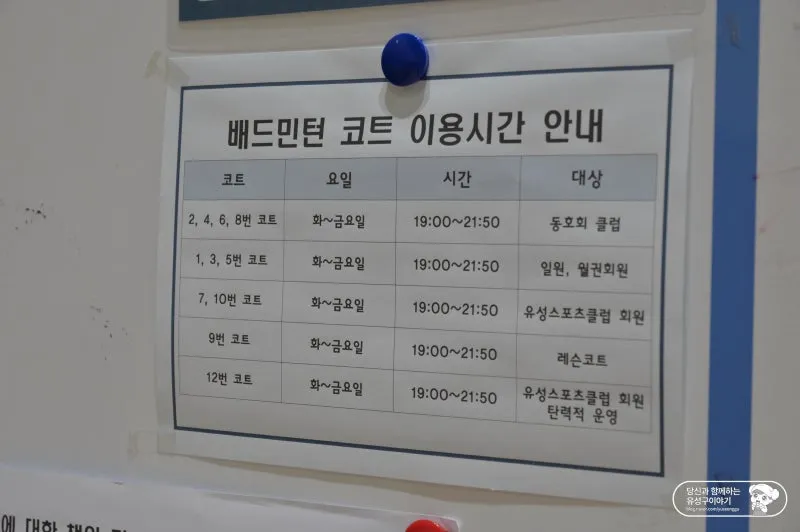 배드민턴 코트 이용시간 안내
코트 요일 시간 대상
2, 4, 6, 8번 코트 화~금요일 19:00~21:50 동호회 클럽
1, 3, 5번 코트 화~금요일 19:00~21:50 일원, 월권회원
7, 10번 코트 화~금요일 19:00~21:50 유성스포츠클럽 회원
9번 코트 화~금요일 19:00~21:50 레슨코트
12번 코트 화~금요일 19:00~21:50 유성스포츠클럽 회원
탄력적 운영
당신과 함께하는
유성구이야기
blog.naver.com/yuseonggu
에 대한 책임